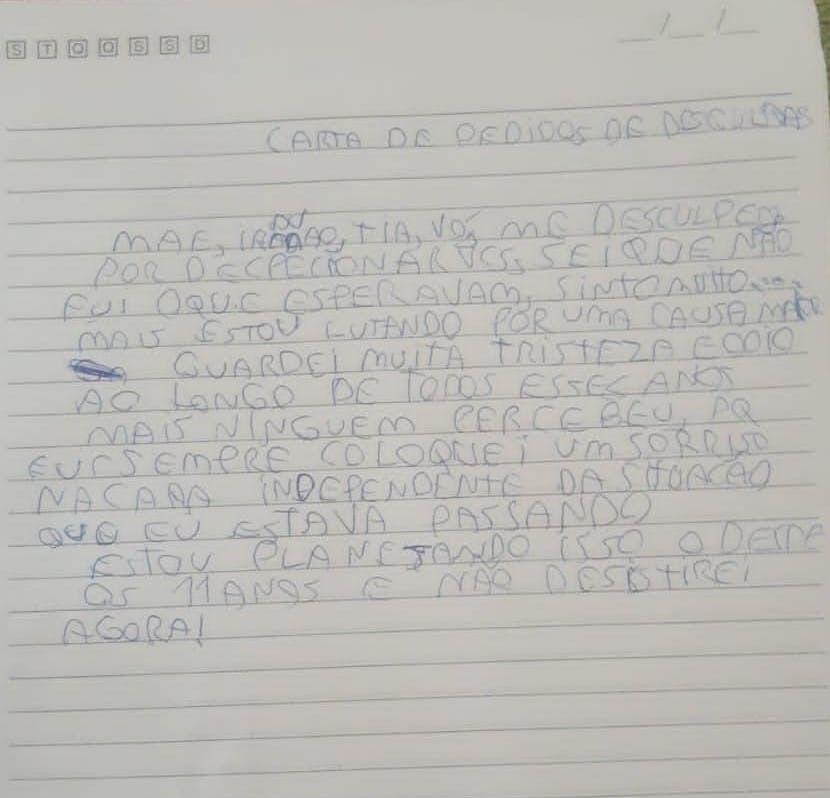 S T Q Q S S D
CARTA DE PEDIDOS DE DESCULPAS
OU
MÃE, IRMÃO, TIA, VÓ, ME DESCULPEM
POR DECPECIONAR VCS, SEI QUE NÃO
FUI OQUE ESPERAVAM, SINTO MUITO....
MAIS ESTOU LUTANDO POR UMA CAUSA
GUARDEI MUITA TRISTEZA E ODIO
AO LONGO DE TODOS ESSEC ANOS
MAIS NINGUEM PERCEBEU, PQ
EU SEMPRE COLOQUEI UM SORRISO
NA CARA INDEPENDENTE DA SITUAÇÃO
QUE EU ESTAVA PASSANDO
ESTOU PLANEJANDO ISSO O DESDE
OS 11 ANOS E NÃO DESISTIREI
AGORA!